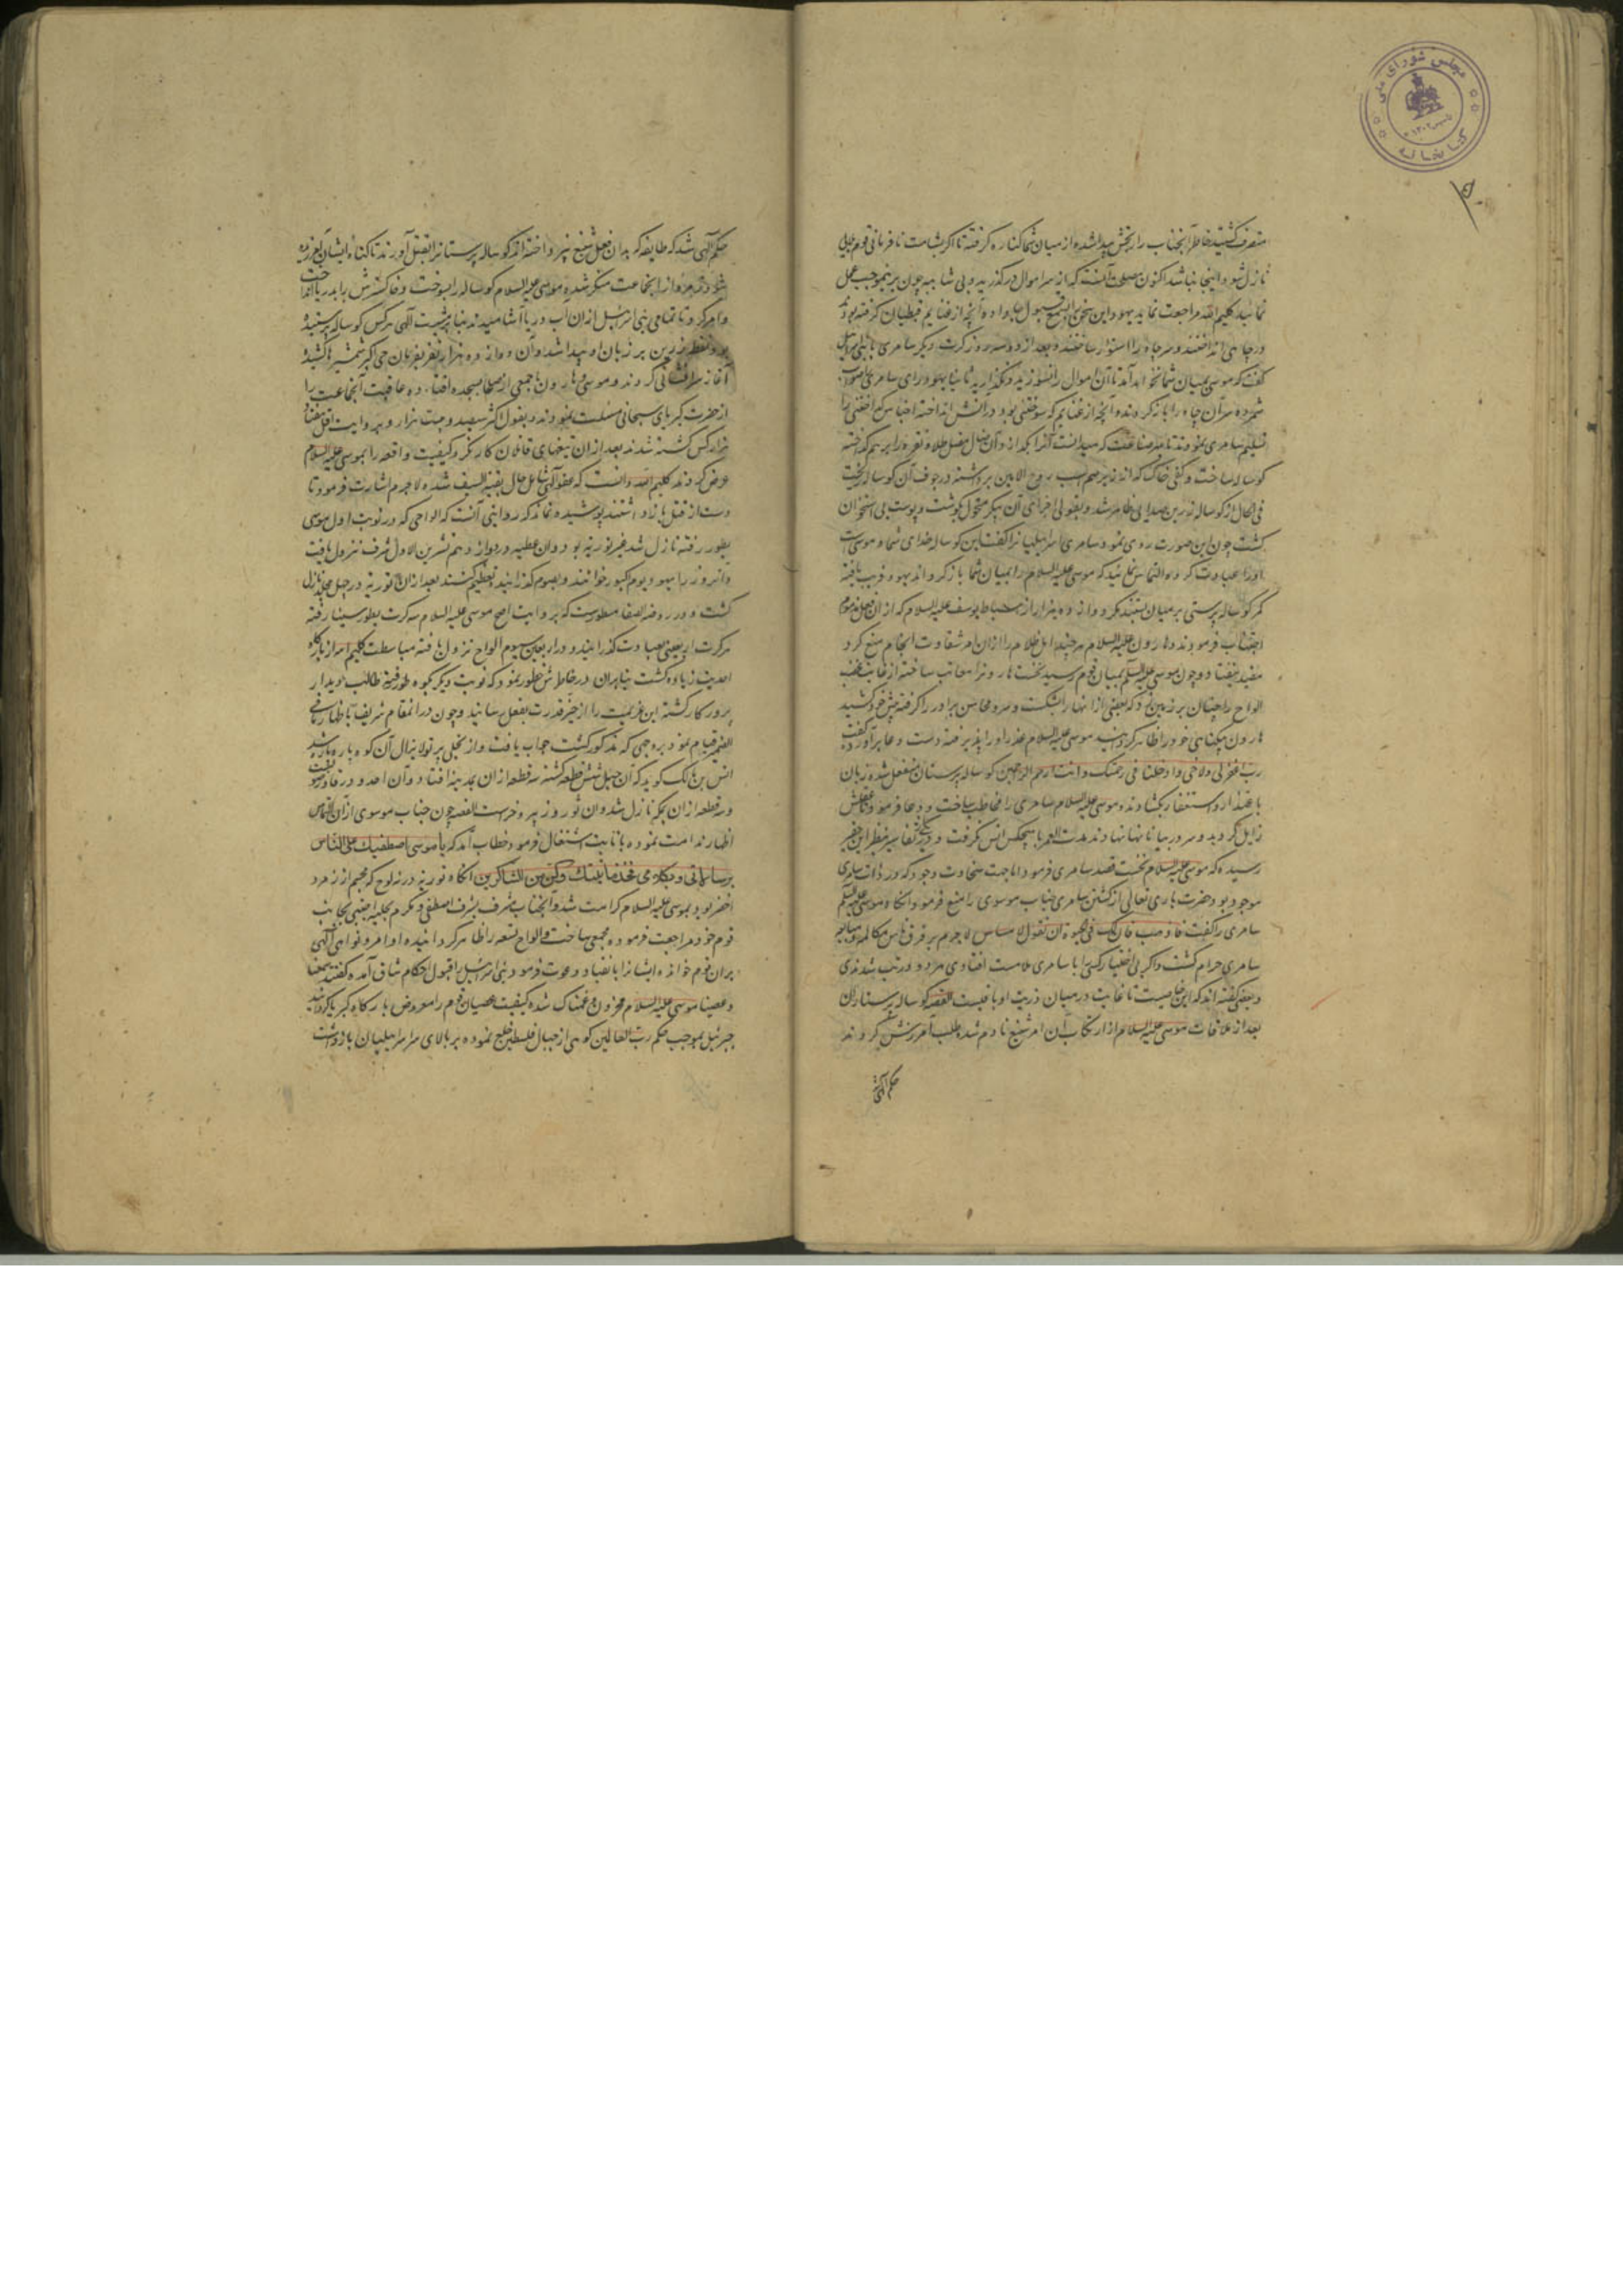 مجلس شورای ملی
کتابخانه
متصرف گشتید خاطر آنجناب را رنجش پیدا شده از میان شما کناره گرفته تا اگر بشامت نافرمانی قوم بلایی
نازل شود اینجا نباشد اکنون مصلحت آنست که از سر اموال درگذرید و بی شایبه چون برینموجب عمل
نمائید کلیم الله مراجعت نماید یهود این سخن را بسمع قبول جا داده آنچه از غنایم قبطیان گرفته بودند
در چاهی انداختند و سر چاه را استوار ساختند و بعد از دو سه روز کرت دیگر سامری با بنی اسرائیل
گفت که موسی بمیان شما نخواهد آمد تا آن اموال را نسوزید و نگذارید
شمرده سر آن چاه را باز کردند و آنچه از غنایم که سوختنی بود در آتش انداخته اجناس گداختنی را
تسلیم سامری نمودند تا بهر صناعت که میدانست آنرا بگدازد و آن ضال مضل طلا و نقره را برهم گداخته
گوساله ساخت و کفی خاک که از زیر سم اسب روح الامین برداشته در جوف آن گوساله ریخت
فی الحال از گوساله زرین صدایی ظاهر شد و بقولی اجزای آن پیکر متحول بگوشت و پوست و استخوان
گشت چون این صورت روی نمود سامری اسرائیلیانرا گفت این گوساله خدای شما و موسی است
اورا عبادت کرده التماس نمائید که موسی علیه السلام را بمیان شما بازگرداند یهود فریب یافته
کمر گوساله پرستی بر میان بستند مگر دوازده هزار از اسباط یوسف علیه السلام که از آن فعل مذموم
اجتناب فرمودند و هارون علیه السلام هرچند اهل ظلام را از آن امر شقاوت انجام منع کرد
مفید نیفتاد و چون موسی علیه السلام بمیان قوم رسید نخست هارونرا معاتب ساخته از غایت غضب
الواح را چنان بر زمین زد که بعضی از آنها را بشکست و سر و محاسن برادر را گرفته پیش خود کشید
هارون بیگناهی خود را ظاهر گردانید موسی علیه السلام عذر او را پذیرفته دست دعا برآورده گفت
رب اغفرلی ولاخی وادخلنا فی رحمتک وانت ارحم الراحمین گوساله پرستان منفعل شده زبان
باعتذار و استغفار بگشادند و موسی علیه السلام سامری را مخاطب ساخت و دعا فرمود تا عقلش
زایل گردید و سر در بیابانها نهاد و بمدت العمر با هیچکس انس نگرفت و در بعضی تفاسیر بنظر این حقیر
رسیده که موسی علیه السلام نخست قصد سامری فرمود اما جهت سخاوت وجود که در ذات سامری
موجود بود حضرت باری تعالی از کشتن سامری جناب موسوی را منع فرمود آنگاه موسی علیه السلام
سامری را گفت فاذهب فان لک فی الحیوة ان تقول لا مساس لاجرم بر فرق ناس مکالمه و مبایعه
سامری حرام گشت و اگر بی اختیار کسی را با سامری ملامست افتادی هر دو در تب شدندی
و بعضی گفته اند که این خاصیت تا غایت در میان ذریت او باقیست القصه گوساله پرستاران
بعد از ملاقات موسی علیه السلام از ارتکاب آن امر شنیع نادم شده طلب آمرزش کردند
حکم الهی
حکم الهی شد که طایفه که بدان فعل شنیع نپرداخته اند گوساله پرستانرا بقتل آورند تا گناه ایشان آمرزیده
شود از آنجماعت منکر شده موسی علیه السلام گوساله را بسوخت و خاکسترش را بدریا انداخت
و امر کرد تا تمامی بنی اسرائیل از آن آب دریا آشامیدند بنابر مشیت الهی هر کس گوساله پرستیده
بود نقطه زرین بر زبان او پیدا شد و آن دوازده هزار نفر بفرمان حی اکبر شمشیرها کشیده
آغاز سرافشانی کردند و موسی و هارون با جمعی از صلحا بسجده افتاده عاقبت آنجماعت را
از حضرت کبریای سبحانی مسئلت نمودند و بقول اکثر سیصد و بیست هزار و بروایت اقل هفتاد
هزار کس کشته شدند بعد از آن تیغهای قاتلان کار نکرد کیفیت واقعه را بموسی علیه السلام
عرض کردند کلیم الله دانست که عفو الهی شامل حال بقیة السیف شده لاجرم اشارت فرمود تا
دست از قتل باز داشتند پوشیده نماند که روایتی آنست که الواحی که در نوبت اول موسی
بطور رفته نازل شد غیر توریة بود و آن عطیه در دوازدهم تشرین الاول شرف نزول یافت
و آنروز را یهود یوم کبور خوانند و بصوم گذرانیده تعظیم کنند بعد از آن توریة در جبل نازل
گشت و در روضة الصفا مسطورست که بروایت اصح موسی علیه السلام سه کرت بطور سینا رفته
هر کرت اربعینی بعبادت گذرانید و در اربعین سیوم الواح نزول یافته مباسطت کلیم الله از بارگاه
احدیت زیاده گشت بنابران در خاطرش خطور نمود که نوبت دیگر بکوه طور رفته طالب دیدار
پرورگار گشته این عزیمت را از حیز قدرت بفعل رسانید و چون در آنمقام شریف باظهار ما فی
الضمیر قیام نمود بروجهی که مذکور گشت جواب یافت و از تجلی پرتو لایزال آن کوه پاره پاره شد
انس بن مالک گوید که آن جبل شش قطعه گشته سه قطعه از آن بمدینه افتاد و آن احد و ورقان و رضوی است
و سه قطعه از آن بمکه نازل شد و آن ثور و ثبیر و حراست القصه چون جناب موسوی از آن التماس
اظهار ندامت نموده بانابت اشتغال فرمود خطاب آمد که یا موسی اصطفیتک علی الناس
برسالاتی وبکلامی فخذ ما آتیتک وکن من الشاکرین آنگاه توریة در نه لوح که مجسم از زمرد
اخضر بود بموسی علیه السلام کرامت شد و آنجناب مشرف بشرف اصطفی و مکرم بحلیه اجتبی بجانب
قوم خود مراجعت فرموده مجمعی ساخت و الواح تسعه را ظاهر گردانیده اوامر و نواهی الهی
بران قوم خوانده ایشانرا بانقیاد دعوت فرمود بنی اسرائیل را قبول احکام شاق آمده گفتند سمعنا
وعصینا موسی علیه السلام محزون و غمناک شده کیفیت عصیان قوم را معروض بارگاه کبریا گردانید
جبرئیل بموجب حکم رب العالمین کوهی از جبال فلسطین قلع نموده بر بالای سر اسرائیلیان بازداشت